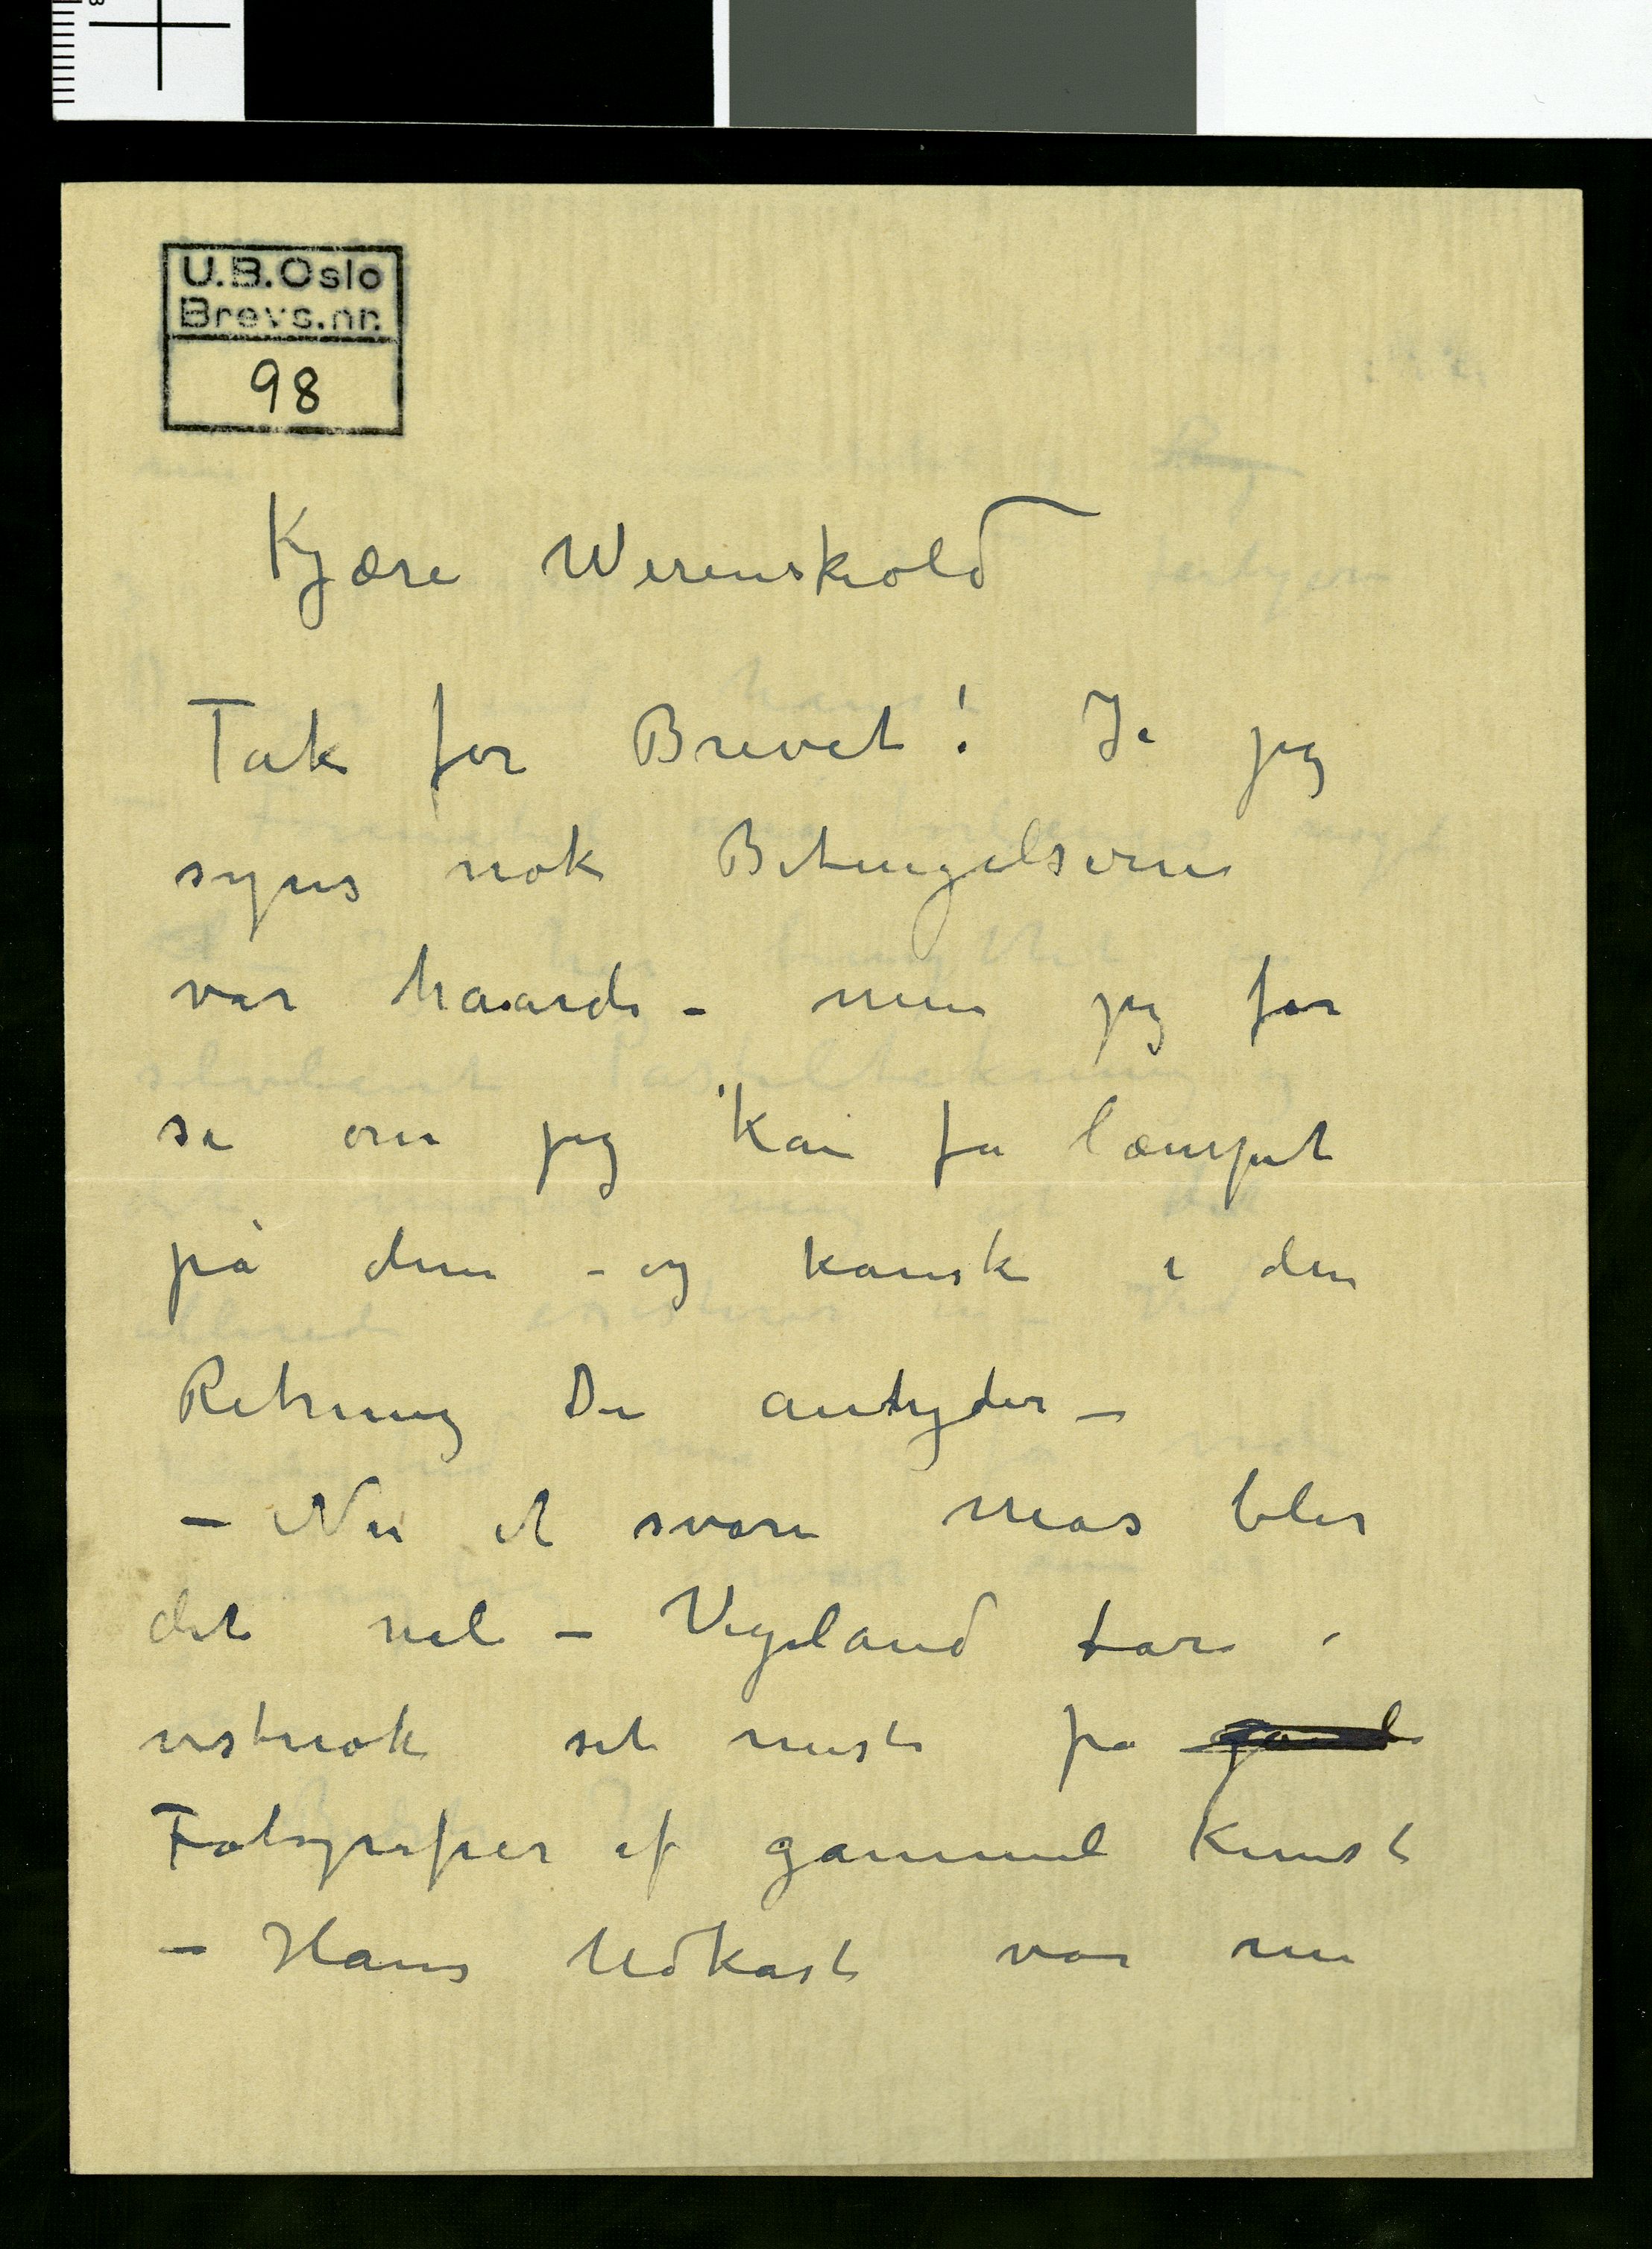 U.B.Oslo
Brevs.nr.
98
Kjære Werenskiold
Tak for Brevet! Ja jeg
synes nok Betingelserne
var haarde – men jeg får
se om jeg kan få læmpet
på dem – og kanske i den
Retning De antyder –
– Nu et svare mas blir
det vel – Vigeland har
vistnok set mest på
Fotografier af gammel Kunst
– Hans Udkast var nu